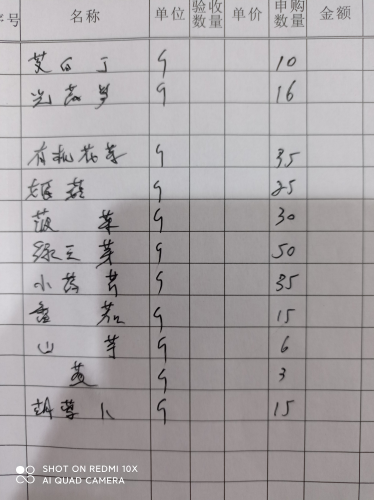 序号 名称 单位 验收数量 单价 申购数量 金额
茭白丁 10
光莴笋 16
有机花菜 35
姬菇 25
菠菜 30
绿豆芽 50
小药芹 35
番茄 15
山芋 6
姜 3
胡萝卜 15
SHOT ON REDMI 10X
AI QUAD CAMERA